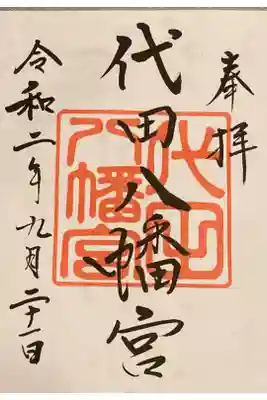 奉拝
代田八幡宮
代田八幡宮
令和二年九月二十一日